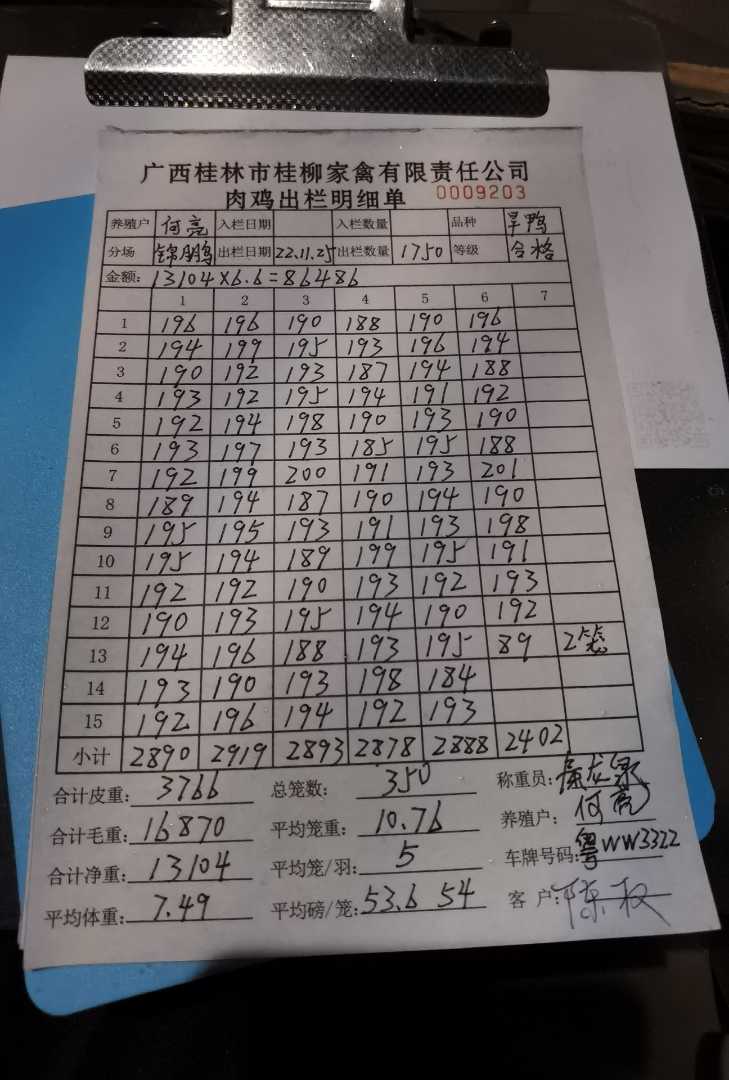 广西桂林市桂柳家禽有限责任公司
肉鸡出栏明细单 0009203
养殖户 何亮 入栏日期 入栏数量 品种 旱鸭
分场 锦鹏鸭 出栏日期 22.11.25 出栏数量 1750 等级 合格
金额: 13104×6.6=86486
1 2 3 4 5 6 7
1 196 196 190 188 190 196
2 194 199 195 193 196 194
3 190 192 193 187 194 188
4 193 192 195 194 191 192
5 192 194 198 190 193 190
6 193 197 193 185 195 188
7 192 199 200 191 193 201
8 189 194 187 190 194 190
9 195 195 193 191 193 198
10 195 194 189 199 195 191
11 192 192 190 193 192 193
12 190 193 195 194 190 192
13 194 196 188 193 195 89 2笼
14 193 190 193 198 184
15 192 196 194 192 193
小计 2890 2919 2893 2878 2888 2402
合计皮重: 3766 总笼数: 350 称重员:
合计毛重: 16870 平均笼重: 10.76 养殖户: 何亮
合计净重: 13104 平均笼/羽: 5 车牌号码: 粤WW3322
平均体重: 7.49 平均磅/笼: 53.6 54 客户: